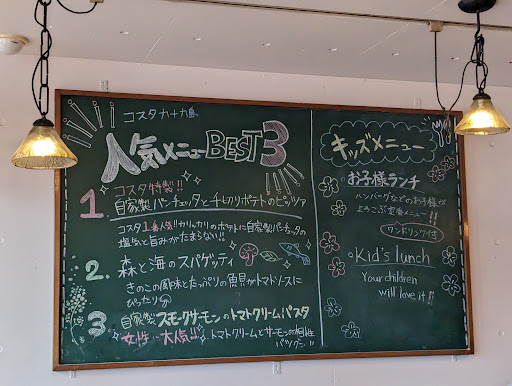 コスタ九十九島
人気メニューBEST3
1. コスタ特製!!
自家製パンチェッタと千切りポテトのピッツァ
コスタ1番人気!! カリッカリのポテトに自家製パンチェッタの
塩気と旨みがたまらない!!
2. 森と海のスパゲッティ
きのこの風味とたっぷりの魚貝がトマトソースに
ぴったり
3 自家製スモークサーモンのトマトクリームパスタ
女性に大人気!! トマトクリームとサーモンの相性
バツグン
キッズメニュー
お子様ランチ
ハンバーグなどのお子様が
よろこぶ定番メニュー!!
ワンドリンク付
Kid's lunch
Your children
will love it!!